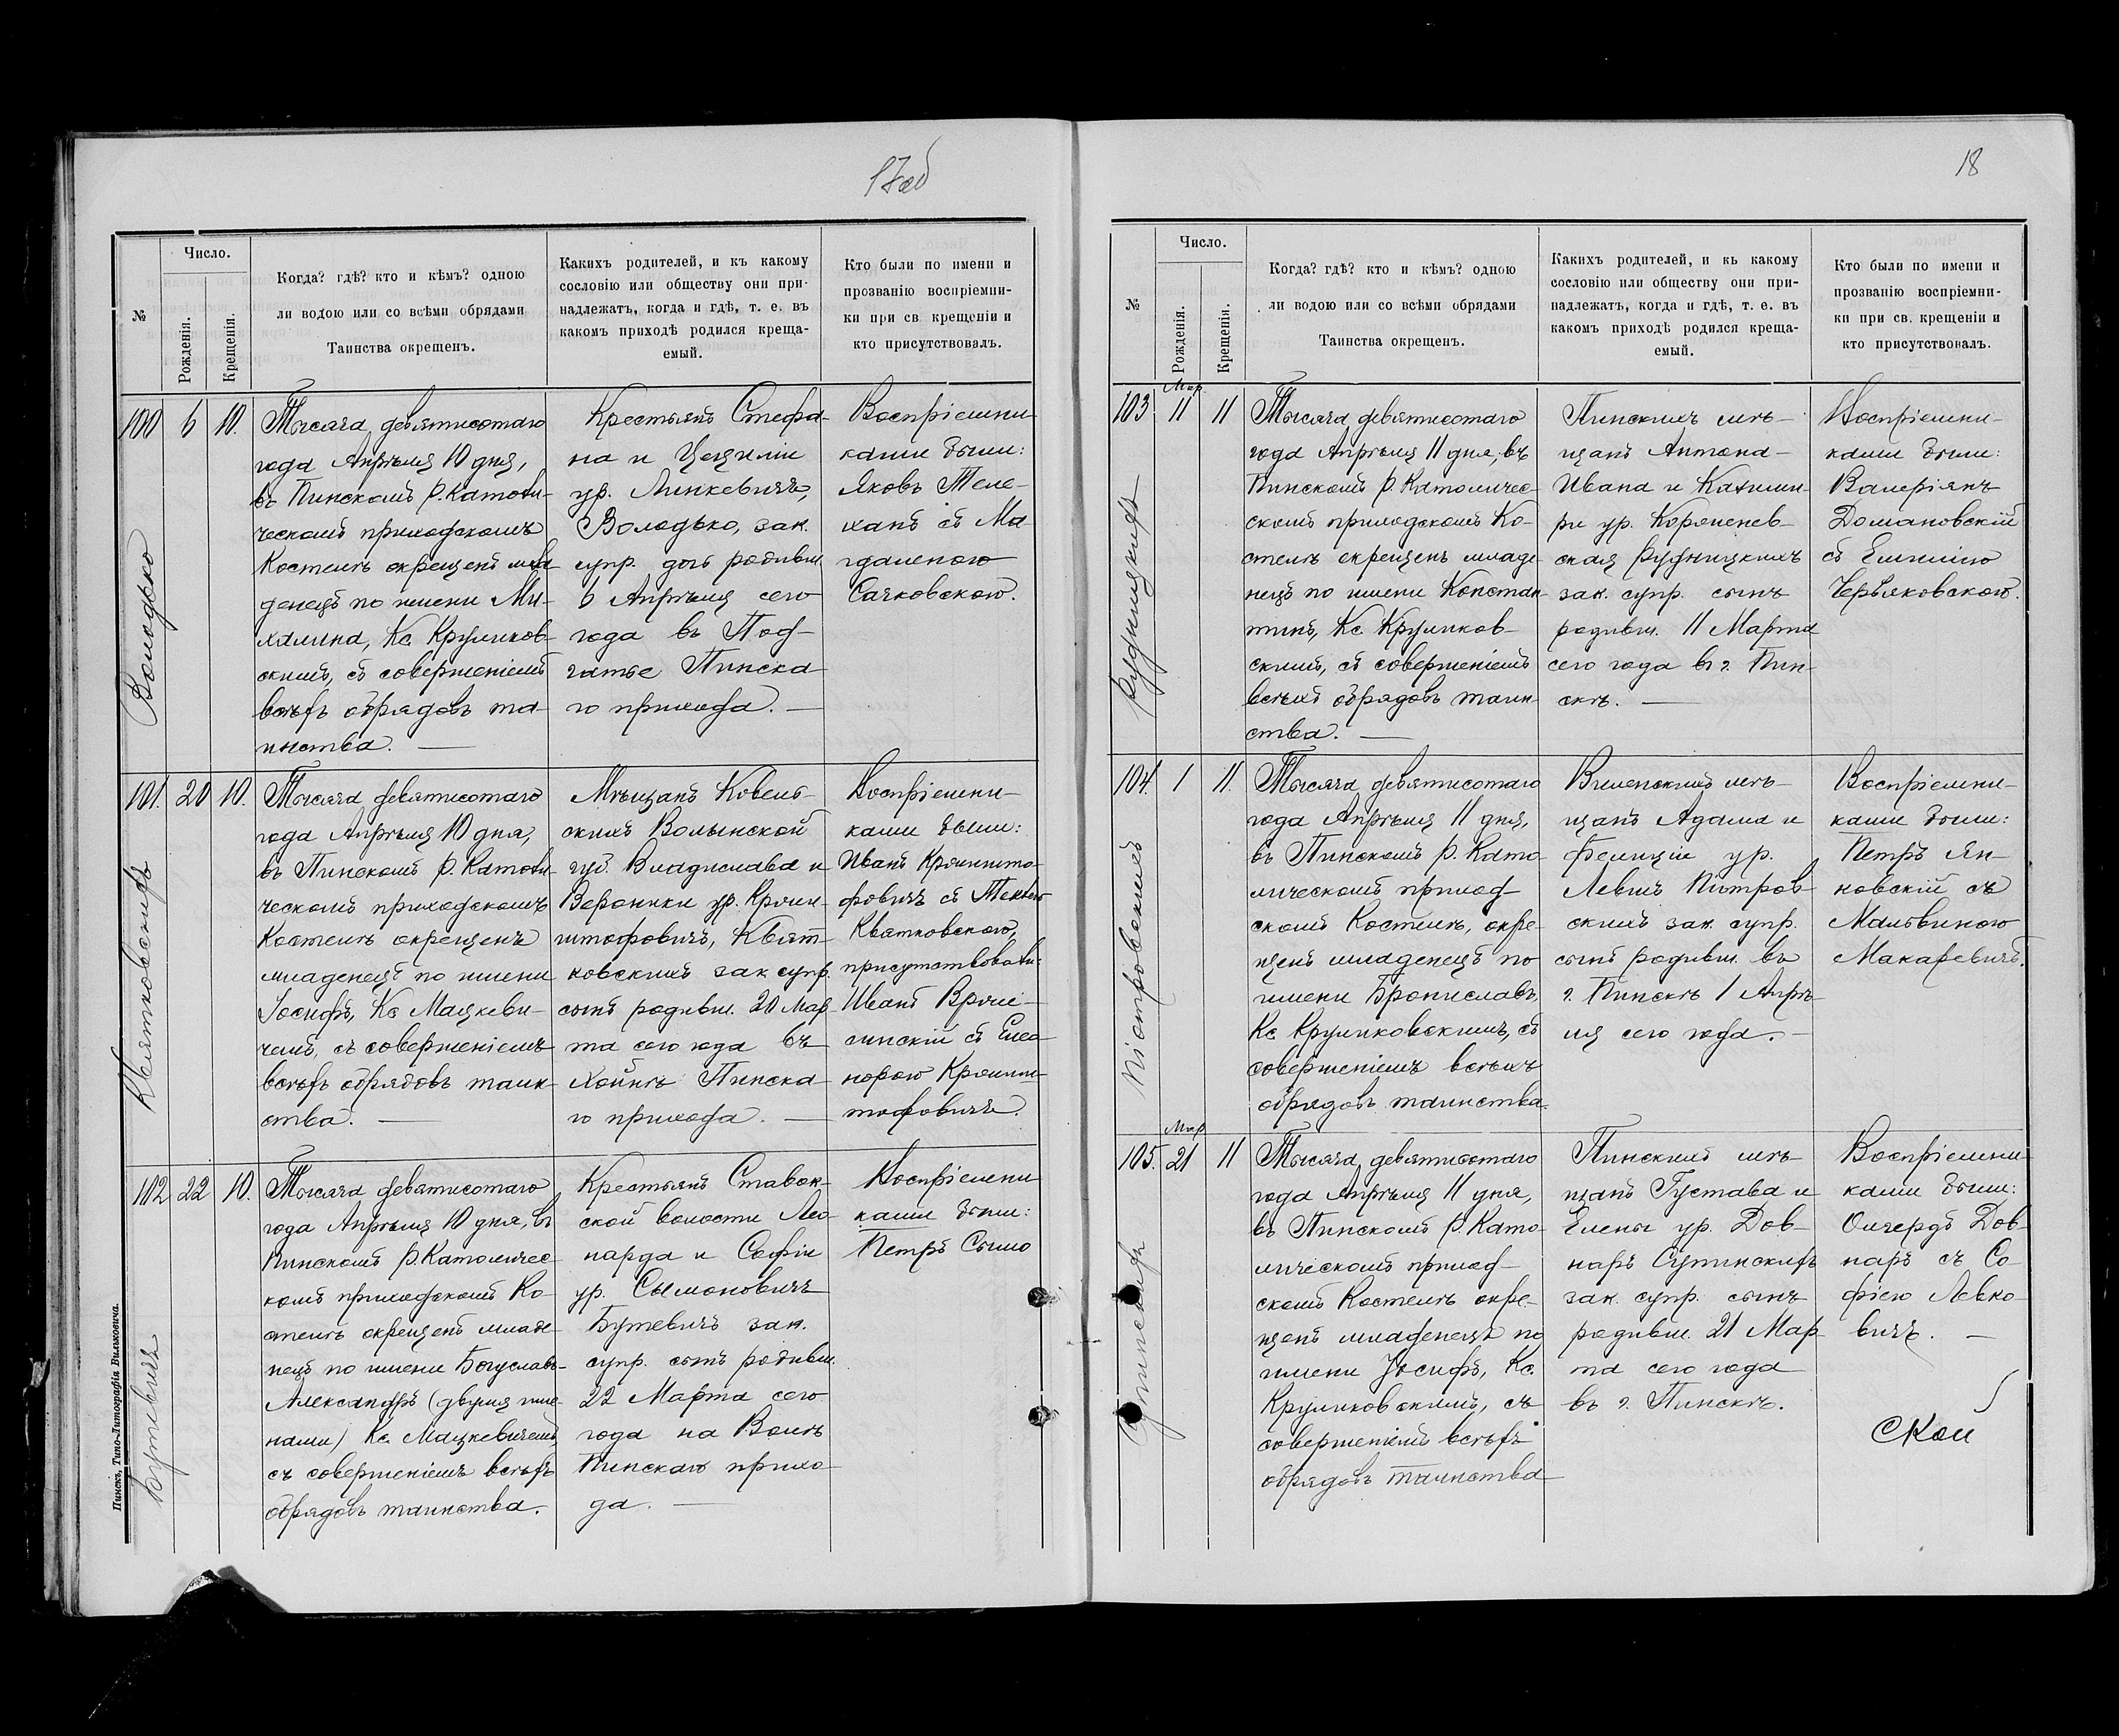 17об
№
Число.
Рожденія.
Крещенія.
Когда? гдѣ? кто и кѣмъ? одною
ли водою или со всѣми обрядами
Таинства окрещенъ.
Каихъ родителей, и къ какому
сословію или обществу они при-
надлежатъ, когда и гдѣ, т. е. въ
какомъ приходѣ родился креща-
емый.
Кто были по имени и
прозванію воспріемни-
ки при св. крещеніи и
кто присутствовалъ.
Володько
100 6 10.
Тысяча девятисотаго
года Апрѣля 10 дня,
въ Пинскомъ Р. Католи-
ческомъ приходскомъ
Костелѣ окрещенъ мла
денецъ по имени Ми-
халина, Кс. Круликов-
скимъ, съ совершеніемъ
всѣхъ обрядовъ та-
инства. —
Крестьянъ Стефа-
на и Цециліи
ур. Линкевичъ,
Володько, зак.
супр. дочь родивш.
6 Апрѣля сего
года въ Под-
гатье Пинска
го прихода. —
Воспріемни-
ками были:
Яковъ Теле-
ханъ съ Ма-
гдаленою
Сачковскою.
Квятковскихъ
101. 20 10.
Тысяча девятисотаго
года Апрѣля 10 дня,
въ Пинскомъ Р. Католи-
ческомъ приходскомъ
Костелѣ окрещенъ
младенецъ по имени
Іосифъ, Кс. Мацкеви-
чемъ, съ совершеніемъ
всѣхъ обрядовъ таин-
ства. —
Мѣщанъ Ковель-
скихъ Волынской
губ. Владислава и
Вероники ур. Крыш-
штофовичъ, Квят-
ковскихъ зак. супр.
сынъ родивш. 20 Мар-
та сего года въ
Хойнѣ Пинска-
го прихода. —
Воспріемни-
ками были:
Иванъ Крыншто-
фовичъ съ Теклею
Квятковскою,
присутствовали:
Иванъ
съ Елео-
норою
тофовичъ.
Бутевичъ
102 22 10.
Тысяча девятисотаго
года Апрѣля 10 дня, въ
Пинскомъ Р. Католичес-
комъ приходскомъ Ко-
стелѣ окрещенъ младе-
нецъ по имени Богуславъ-
Александръ (двумя име-
нами) Кс. Мацкевичемъ,
съ совершеніемъ всѣхъ
обрядовъ таинства.
Крестьянъ Ставок-
ской волости Лео-
нарда и Софіи
ур. Сымоновичъ
Бутевичъ зак.
супр. сынъ родивш.
22 Марта сего
года на Волѣ
Пинскаго прихо-
да. —
Воспріемни
ками были:
Петръ Сымо
Пинскъ, Типо-Литографія Вильковича.
18
№
Число.
Рожденія.
Крещеніи.
Когда? гдѣ? кто и кѣмъ? одною
ли водою или со всѣми обрядами
Таинства окрещенъ.
Каихъ родителей, и кь какому
сословію или обществу они при-
надлежатъ, когда и гдѣ, т. е. въ
какомъ приходѣ родился креща-
емый.
Кто были по имени и
прозванію воспріемни-
ки при св. крещеніи и
кто присутствовалъ.
Рудницкихъ
Мар.
103. 11 11
Тысяча девятисотаго
года Апрѣля 11 дня, въ
Пинскомъ Р. Католичес-
скомъ приходскомъ Ко-
стелѣ окрещенъ младе-
нецъ по имени Констан-
тинъ, Кс. Круликов-
скимъ, съ совершеніемъ
всѣхъ обрядовъ таин-
ства. —
Пинскихъ мѣ-
щанъ Антона-
Ивана и Казими-
ры ур. Коряненев-
ская Рудницкихъ
зак. супр. сынъ
родивш. 11 Марта
сего года въ г. Пин-
скѣ. —
Воспріемни-
ками были:
Валеріянъ
Домановскій
съ Емиліею
Червяковскою.
Піотровскихъ
104. 1 11.
Тысяча девятисотаго
года Апрѣля 11 дня,
въ Пинскомъ Р. Като-
лическомъ приход-
скомъ Костелѣ, окре-
щенъ младенецъ по
имени Брониславъ,
Кс. Круликовскимъ, съ
совершеніемъ всѣхъ
обрядовъ таинства.
Виленскихъ мѣ-
щанъ Адама и
Фелиціи ур.
Левшъ Піотров
скихъ зак. супр.
сынъ родивш. въ
г. Пинскѣ 1 Апрѣ-
ля сего года. —
Воспріемни-
ками были:
Петръ Ян-
новскій съ
Мальвиною
Макаревичъ.
Мар
105. 21 11
Тысяча девятисотаго
года Апрѣля 11 дня,
въ Пинскомъ Р. Като-
лическомъ приход-
скомъ Костелѣ окре-
щенъ младенецъ по
имени Іосифъ, Кс.
Круликовскимъ, съ
совершеніемъ всѣхъ
обрядовъ таинства
Пинскихъ мѣ-
щанъ Густава и
Елены ур. Дов-
наръ Супинскихъ
зак. супр. сынъ
родивш. 21 Мар-
та сего года
въ г. Пинскѣ.
Воспріемни-
ками были:
Дов-
наръ съ Со-
фіею Левко-
вичъ. —
Ской